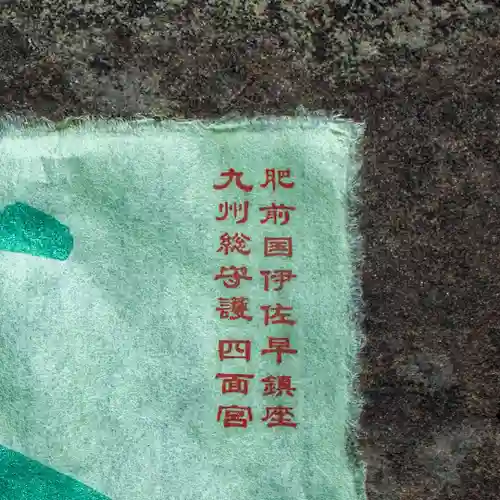 肥前国伊佐早鎮座
九州総守護 四面宮